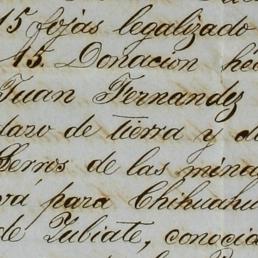 15 fojas legalizado
15. Donacion hec
Juan Fernandez
dazo de tierra y de
Cerros de las minas
vá para Chihuahu
de Zubiate, conocid